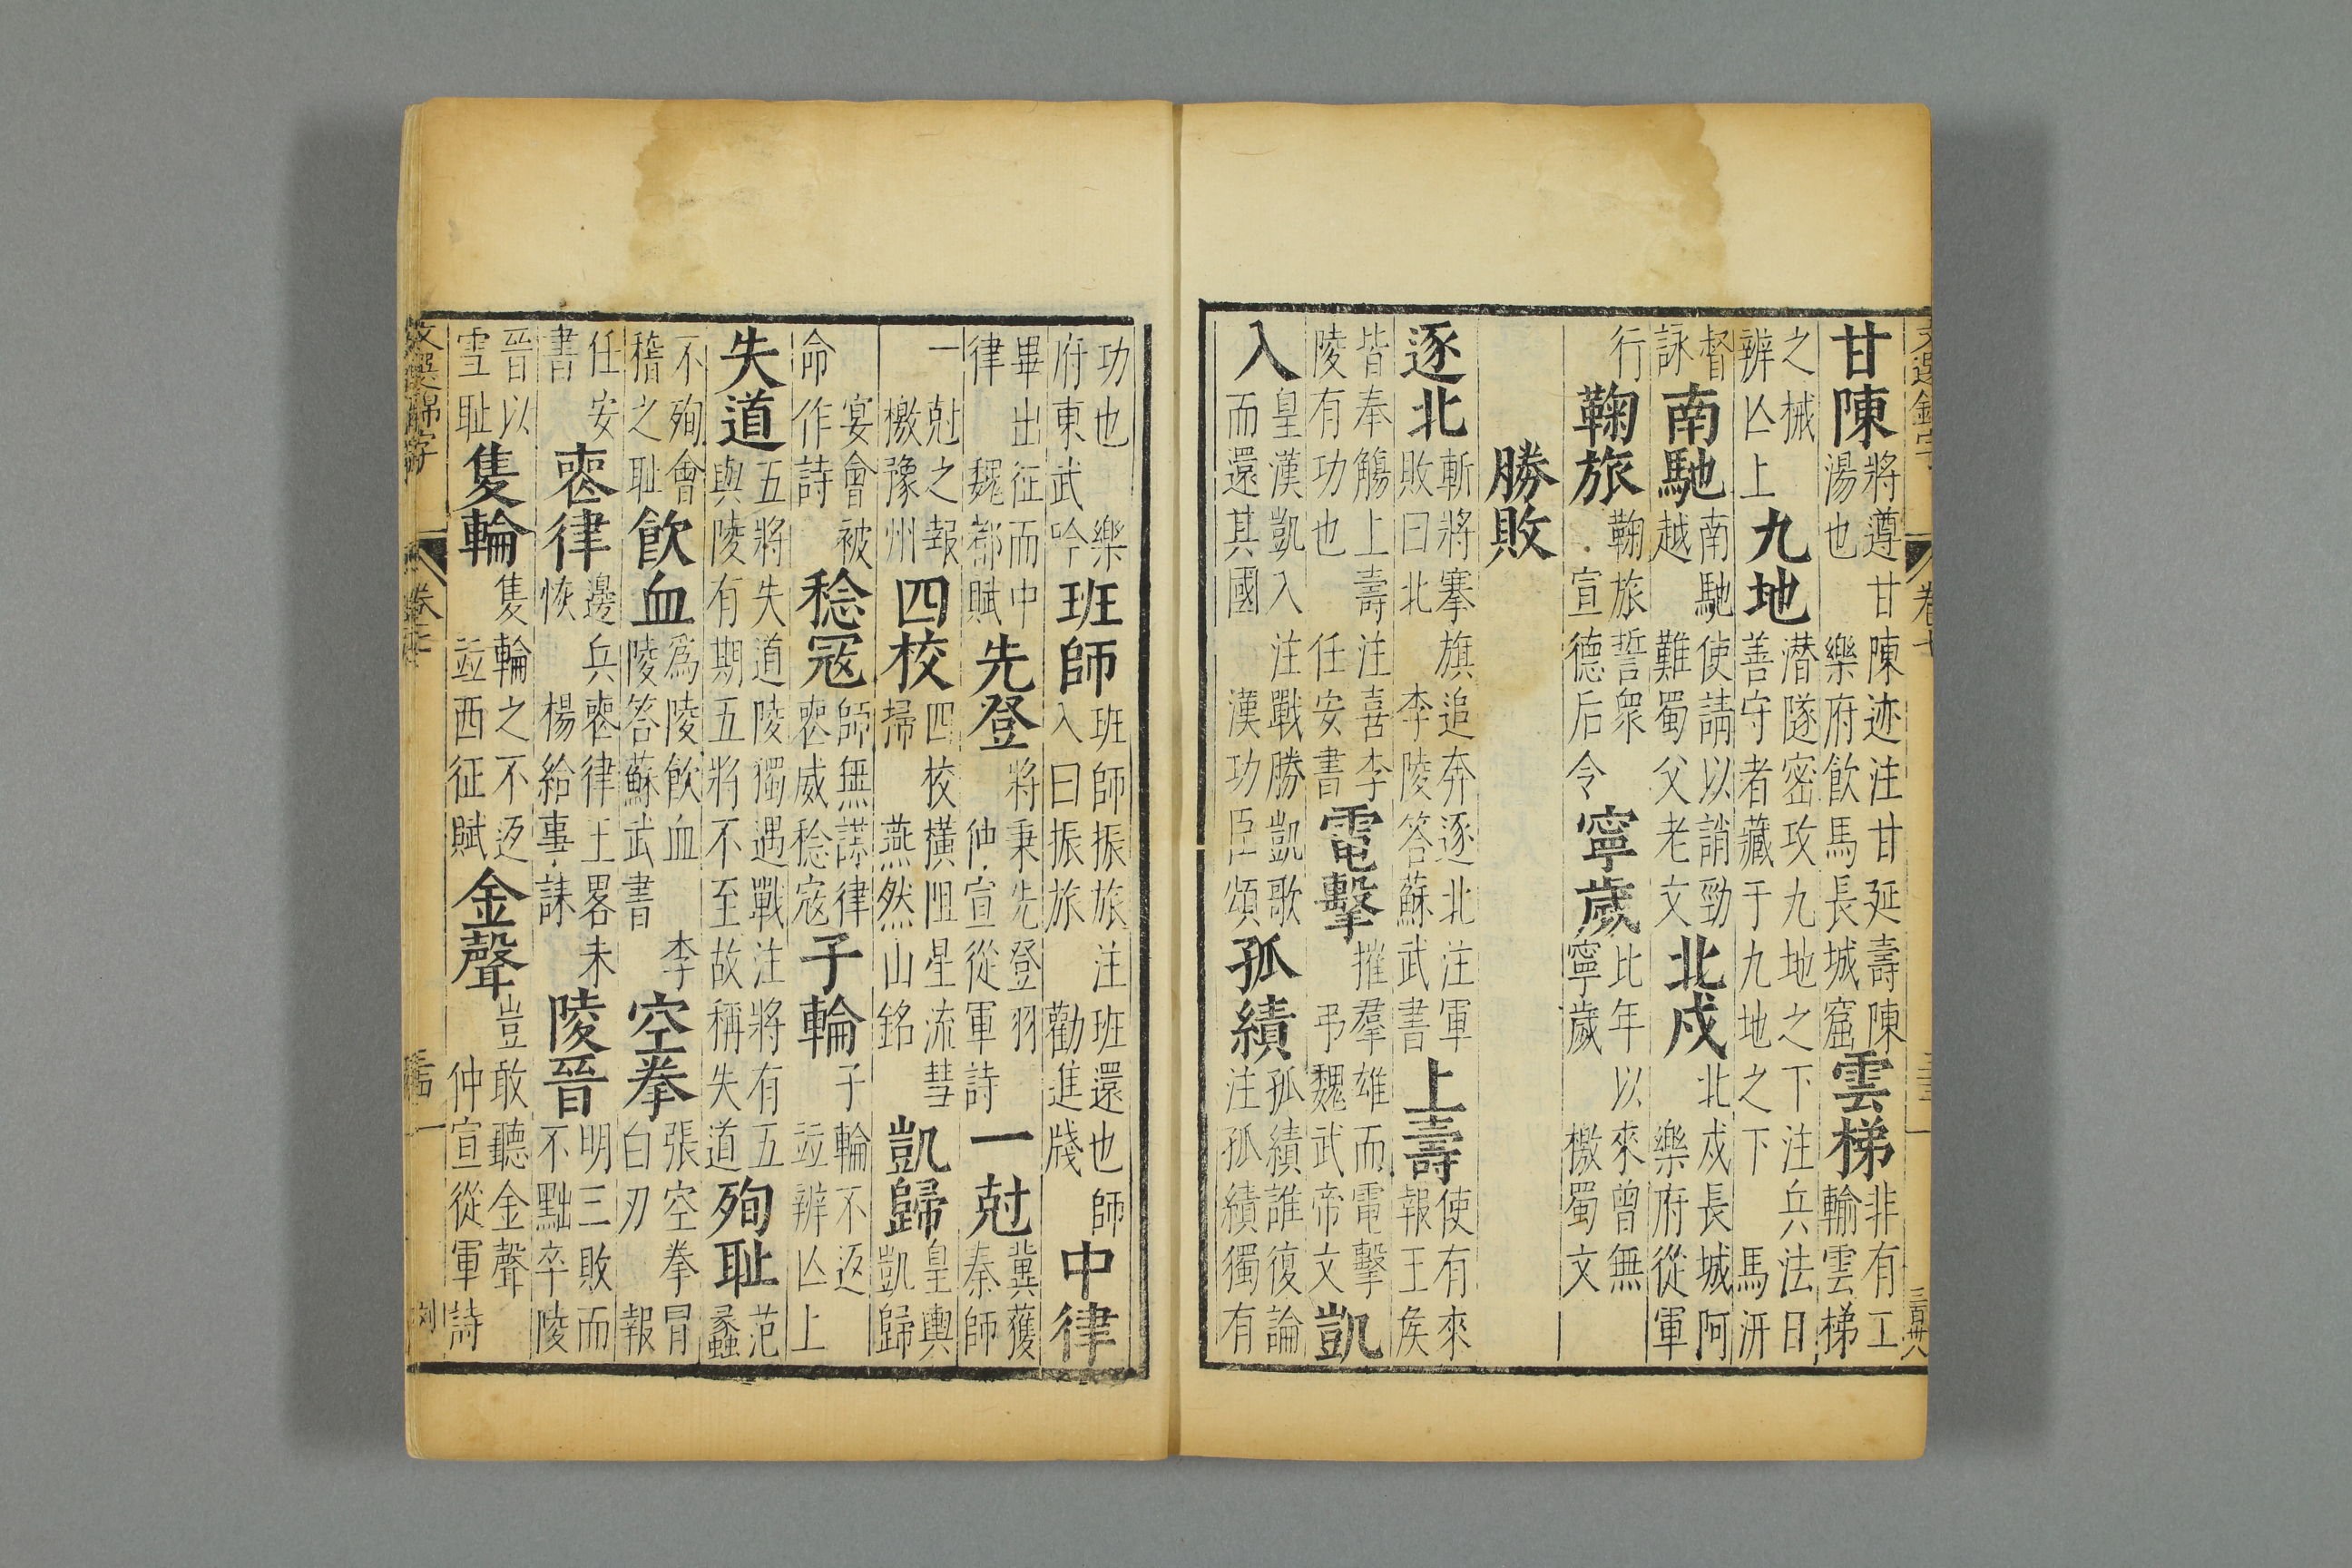 甘陳將遵甘陳迹注甘延壽陳湯也樂府飲馬長城窟雲梯非有工輸雲梯
之械辨亾上九地潜隧密攻九地之下注兵法曰善守者藏于九地之下馬汧
督詠南馳南馳越北戍使請以誚勁難蜀父老文北戍長城阿樂府從軍
行鞠旅鞠旅誓衆宣德后令寧歲比年以來曾無寧歲檄蜀文
勝敗
逐北斬將搴旗追奔逐北注軍敗曰北李陵答蘇武書上壽使有來報王侯
皆奉觴上壽注喜李陵有功也任安書電擊摧羣雄而電擊弔魏武帝文凱
入皇漢凱入而還其國注戰勝凱歌漢功臣頌孤績孤績誰復論注孤績獨有
功也樂府東武吟班師班師振旅注班還也師入曰振旅勸進牋中律
畢出征而中律魏都賦先登將秉先登羽仲宣從軍詩一尅冀獲秦師
一尅之報檄豫州四校四校橫徂星流彗掃燕然山銘凱歸皇輿凱歸
宴會被命作詩稔寇師無謀律喪威稔寇子輪子輪不返竝辨亾上
失道五將失道陵獨遇戰注將有五與陵有期五將不至故稱失道殉耻范蠡
不殉會稽之耻飲血爲陵飲血陵答蘇武書空拳李張空拳冒白刃報
任安書喪律邊兵喪律王畧未恢楊給事誄陵晉明三敗而不黜卒陵
晉以雪耻隻輪隻輪之不返竝西征賦金聲豈敢聽金聲仲宣從軍詩